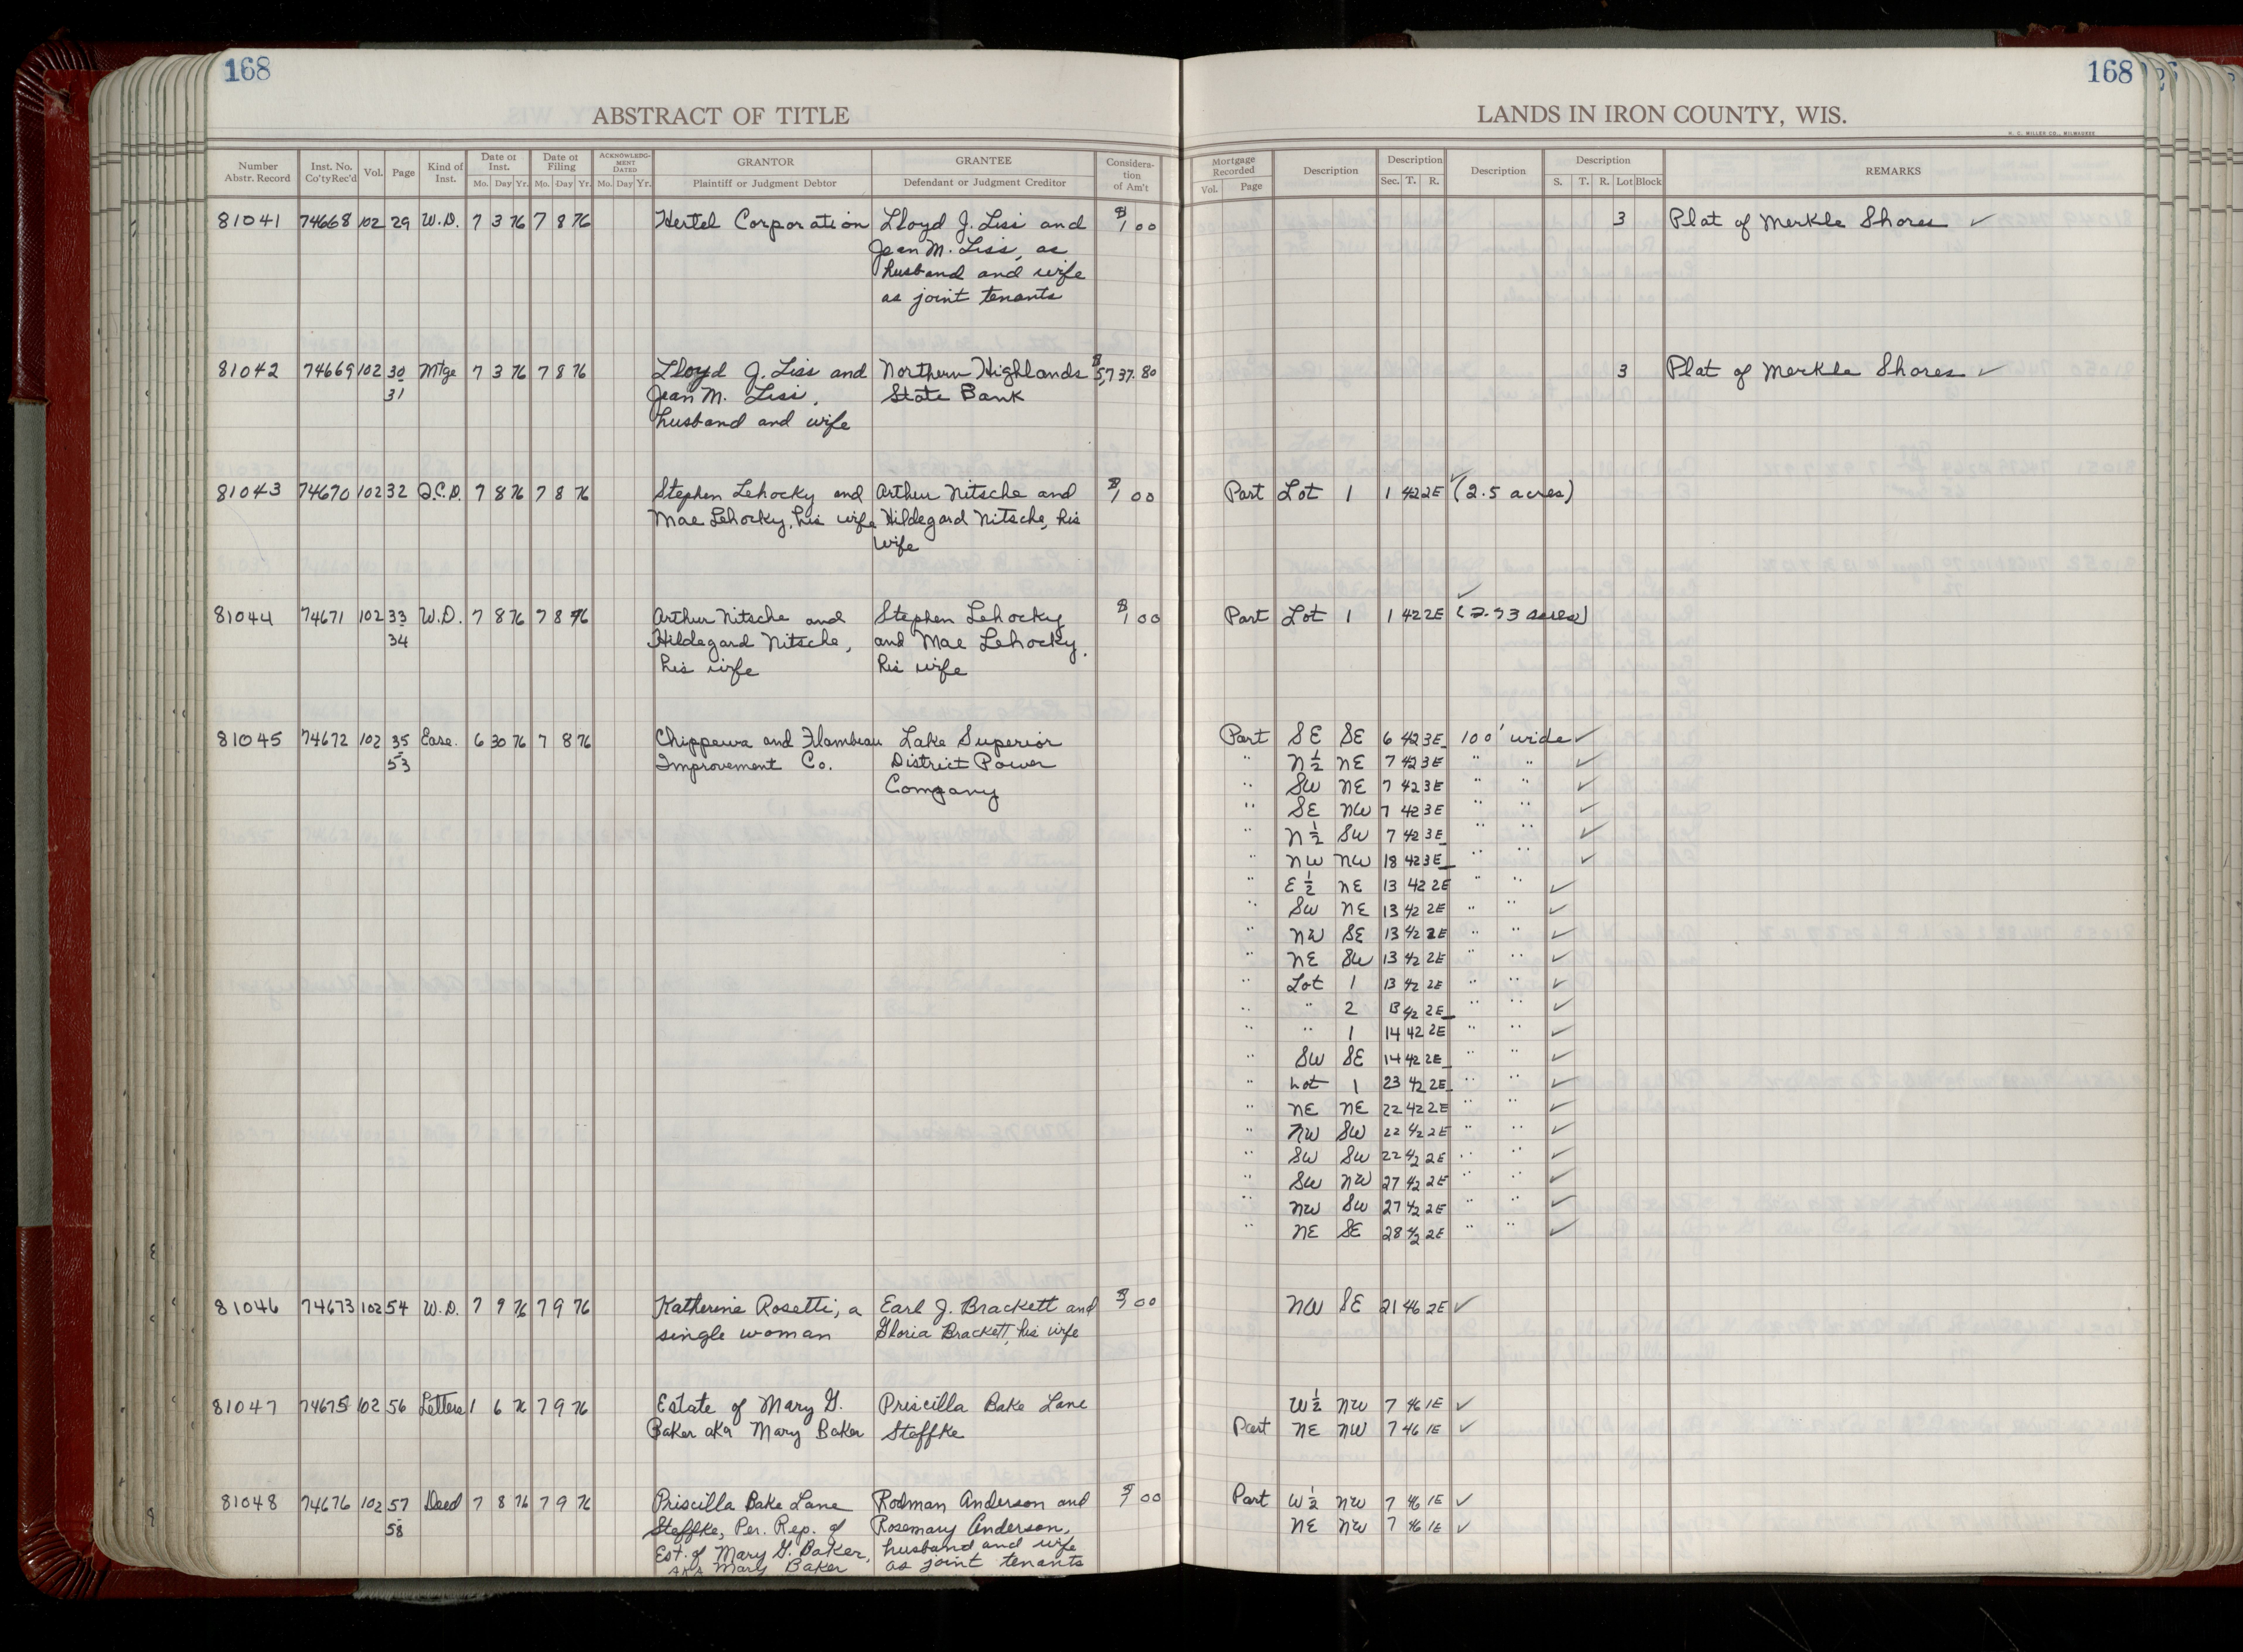 168
168
ABSTRACT OF TITLE
LANDS IN IRON COUNTY, WIS.
H. C. MILLER CO., MILWAUKEE
Number Abstr. Record | Inst. No. Co'ty Rec'd | Vol. | Page | Kind of Inst. | Date of Inst. Mo. Day Yr. | Date of Filing Mo. Day Yr. | ACKNOWLEDGMENT DATED Mo. Day Yr. | GRANTOR Plaintiff or Judgment Debtor | GRANTEE Defendant or Judgment Creditor | Consideration of Am't | Mortgage Recorded Vol. Page | Description | Description Sec. T. R. | Description | Description S. T. R. Lot Block | REMARKS
81041 74668 102 29 W.D. 7 3 76 7 8 76 Hertel Corporation Lloyd J. Liss and $1 00 3 Plat of Merkle Shores ✓
Jean M. Liss, as
husband and wife
as joint tenants
81042 74669 102 30 Mtge 7 3 76 7 8 76 Lloyd J. Liss and Northern Highlands $5,737.80 3 Plat of Merkle Shores ✓
31 Jean M. Liss, State Bank
husband and wife
81043 74670 102 32 Q.C.D. 7 8 76 7 8 76 Stephen Lehocky and Arthur Nitsche and $1 00 Part Lot 1 1 42 2E (2.5 acres) ✓
Mae Lehocky, his wife Hildegard Nitsche, his
wife
81044 74671 102 33 W.D. 7 8 76 7 8 76 Arthur Nitsche and Stephen Lehocky $1 00 Part Lot 1 1 42 2E acres) ✓
34 Hildegard Nitsche, and Mae Lehocky,
his wife his wife
81045 74672 102 35 Ease. 6 30 76 7 8 76 Chippewa and Flambeau Lake Superior Part SE SE 6 42 3E 100' wide ✓
53 Improvement Co. District Power " N½ NE 7 42 3E " " ✓
Company " SW NE 7 42 3E " " ✓
" SE NW 7 42 3E " " ✓
" N½ SW 7 42 3E " " ✓
" NW NW 18 42 3E " " ✓
" E½ NE 13 42 2E " " ✓
" SW NE 13 42 2E " " ✓
" NW SE 13 42 2E " " ✓
" NE SW 13 42 2E " " ✓
" Lot 1 13 42 2E " " ✓
" " 2 13 42 2E " " ✓
" " 1 14 42 2E " " ✓
" SW SE 14 42 2E " " ✓
" Lot 1 23 42 2E " " ✓
" NE NE 22 42 2E " " ✓
" NW SW 22 42 2E " " ✓
" SW SW 22 42 2E " " ✓
" SW NW 27 42 2E " " ✓
" NW SW 27 42 2E " " ✓
" NE SE 28 42 2E " " ✓
81046 74673 102 54 W.D. 7 9 76 7 9 76 Katherine Rosetti, a Earl J. Brackett and $1 00 NW SE 21 46 2E ✓
single woman Gloria Brackett, his wife
81047 74675 102 56 Letters 1 6 76 7 9 76 Estate of Mary G. Priscilla Bake Lane W½ NW 7 46 1E ✓
Baker aka Mary Baker Steffke Part NE NW 7 46 1E ✓
81048 74676 102 57 Deed 7 8 76 7 9 76 Priscilla Bake Lane Rodman Anderson and $1 00 Part W½ NW 7 46 1E ✓
58 Steffke, Per. Rep. of Rosemary Anderson, NE NW 7 46 1E ✓
Est. of Mary G. Baker, husband and wife
AKA Mary Baker as joint tenants